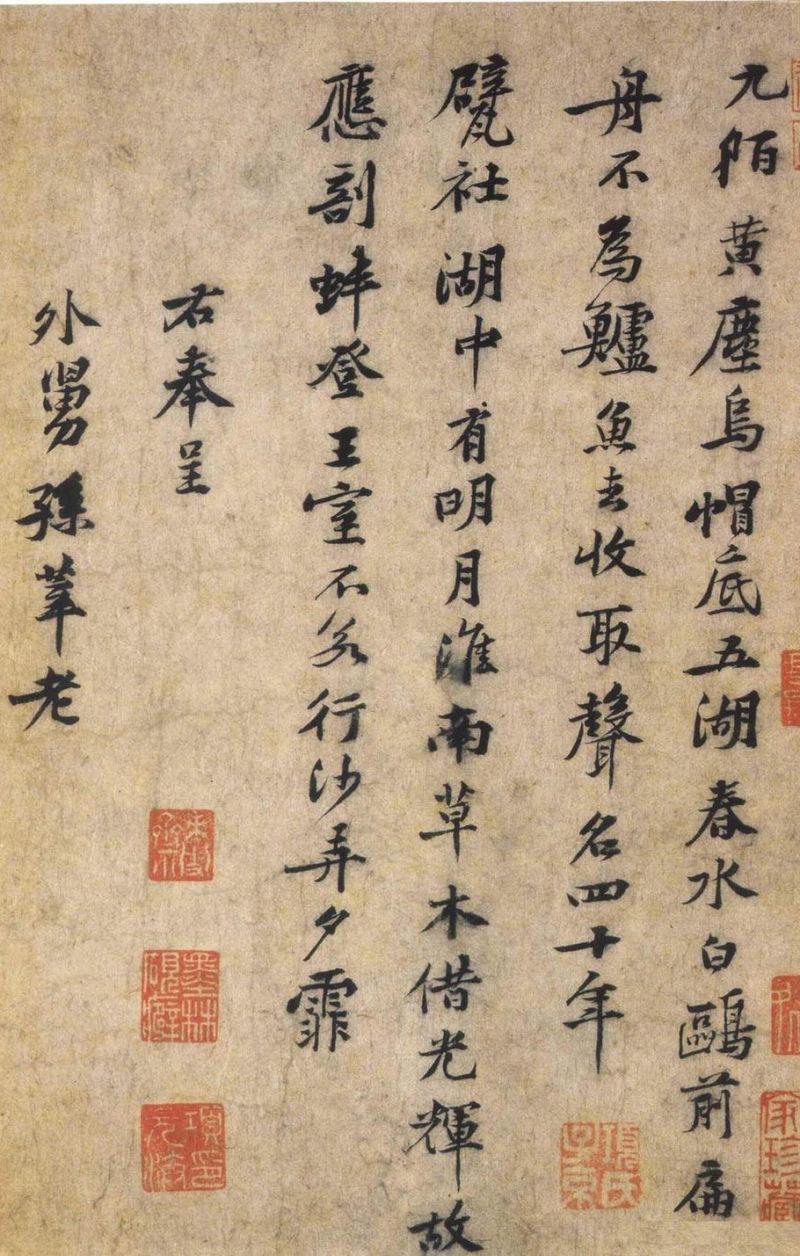 九陌黃塵烏帽底五湖春水白鷗前扁
舟不為鱸魚去收取聲名四十年
甓社湖中有明月淮南草木借光輝故
應剖蚌登王室不若行沙弄夕霏
右奉呈
外舅孫莘老
家珍藏
墨林硯癖